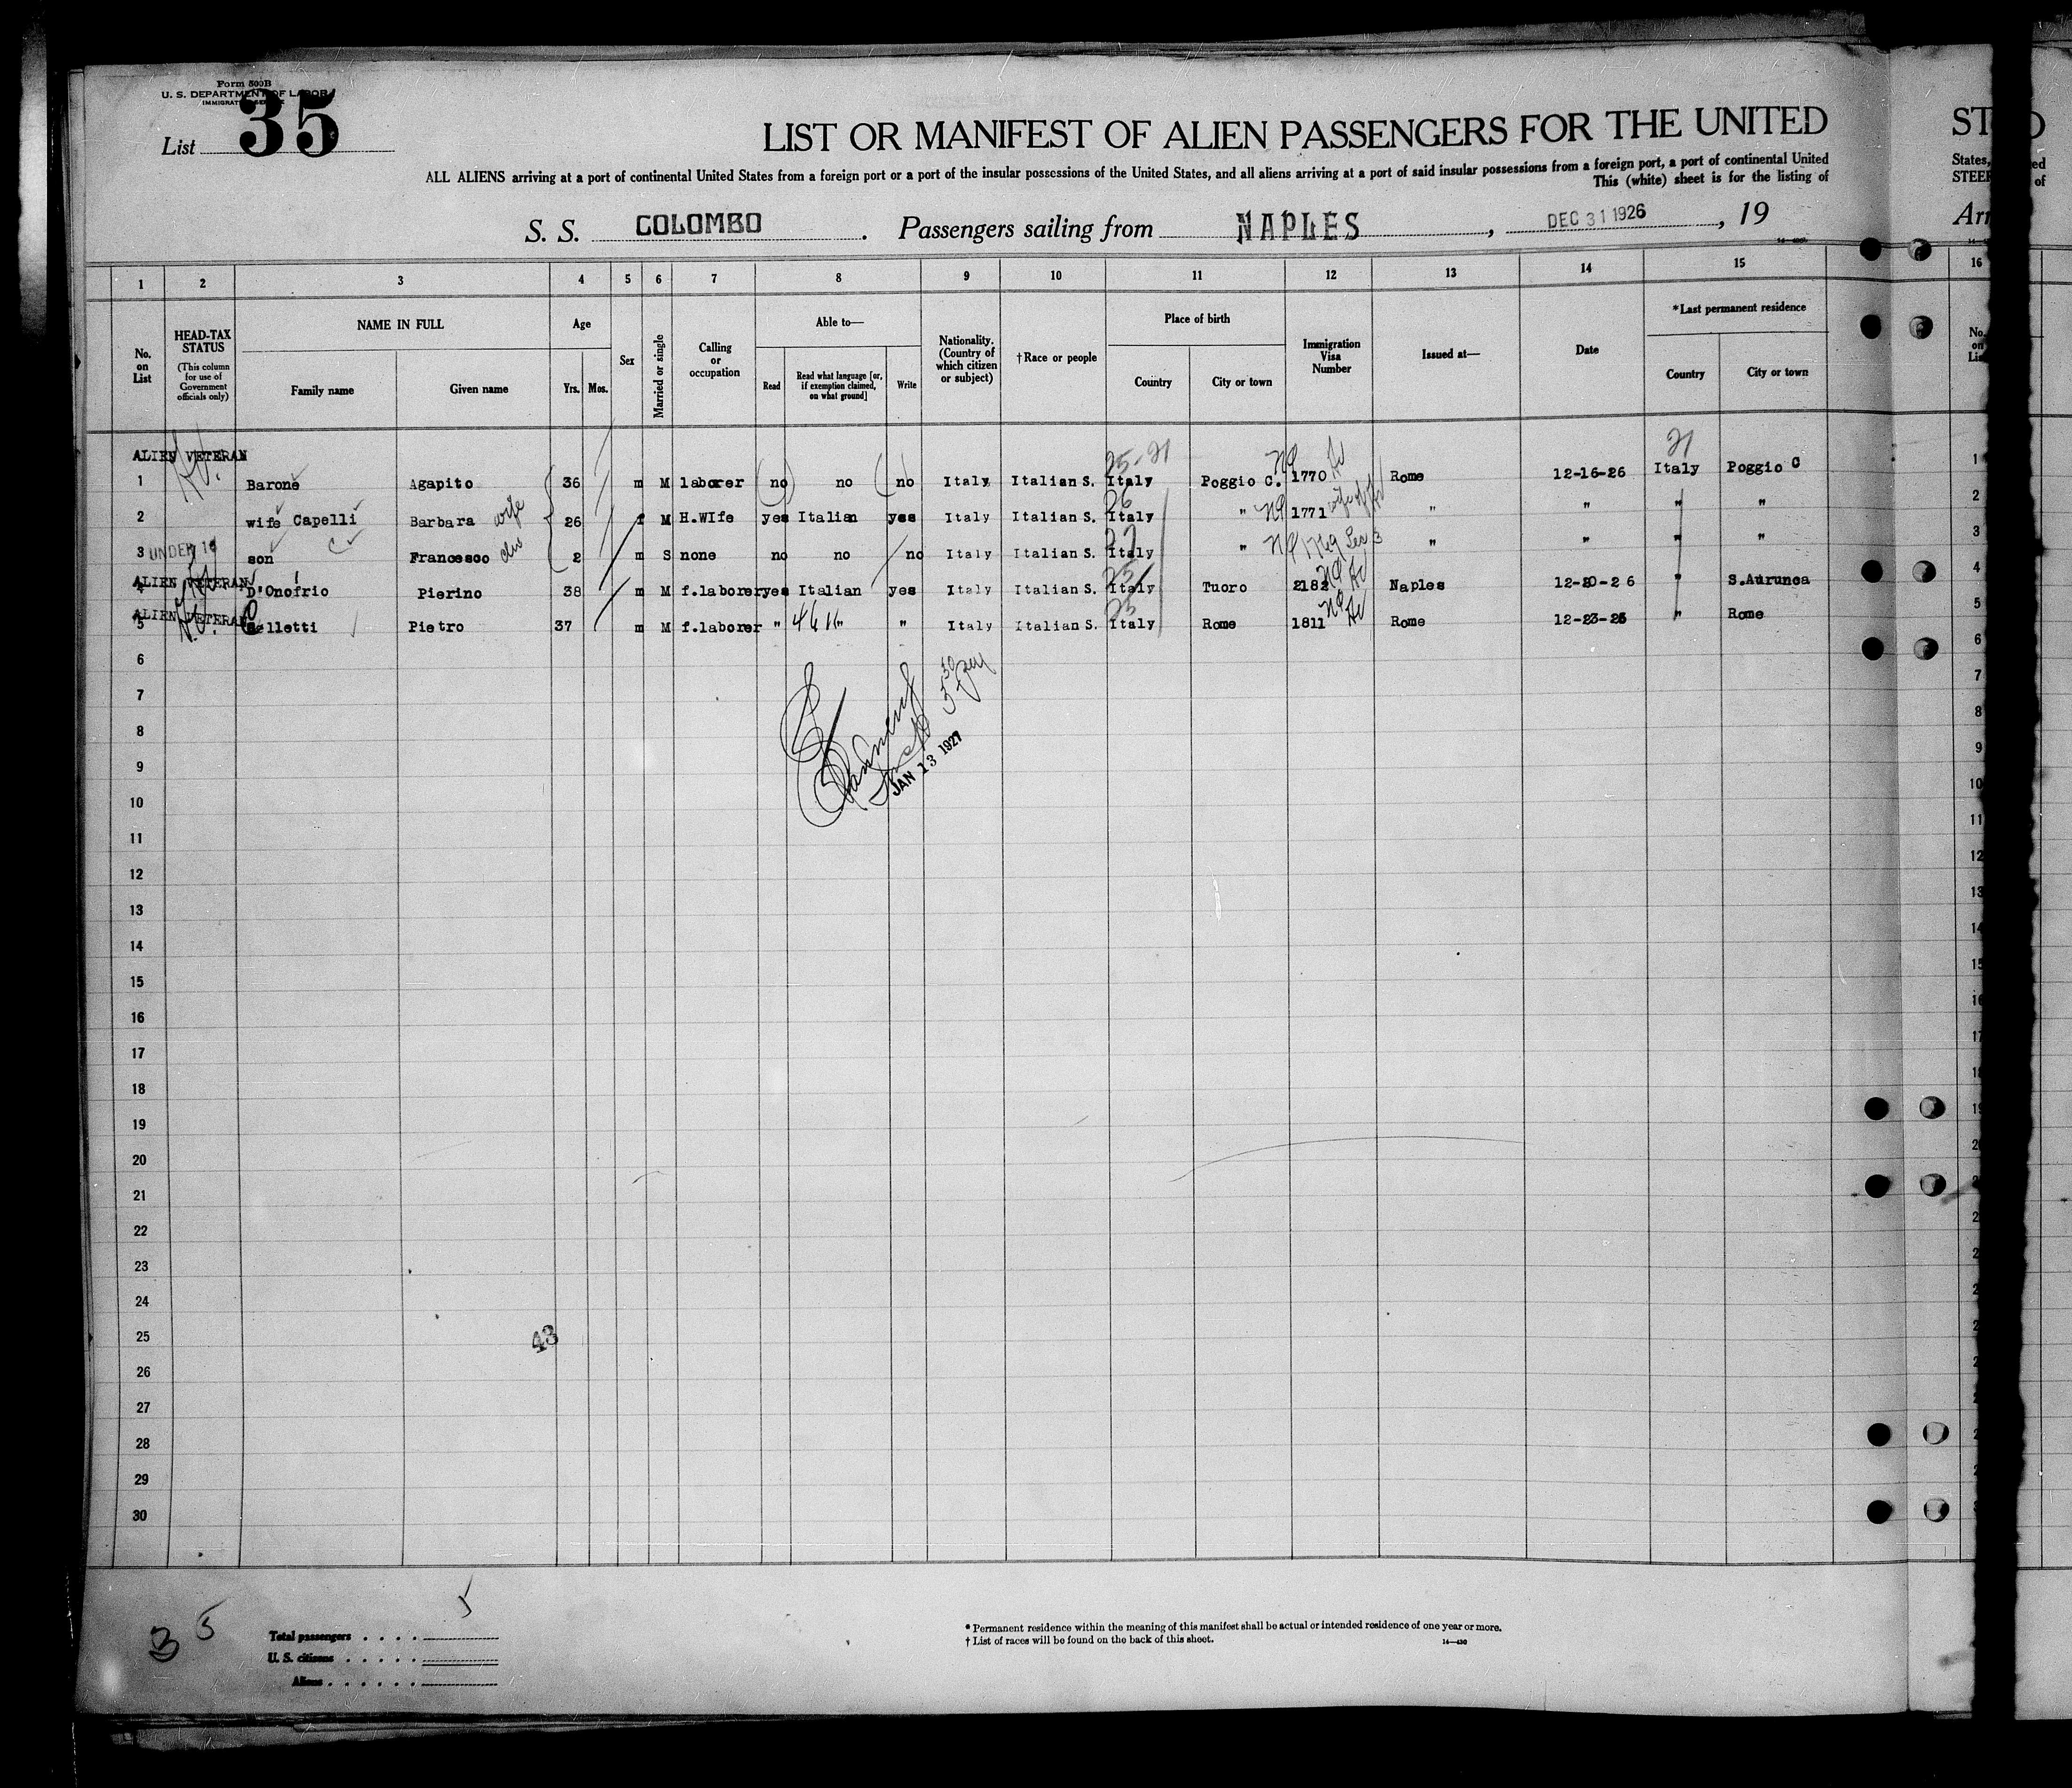 Form 500B
U. S. DEPARTMENT OF LABOR
IMMIGRATION SERVICE
List 35
LIST OR MANIFEST OF ALIEN PASSENGERS FOR THE UNITED
ALL ALIENS arriving at a port of continental United States from a foreign port or a port of the insular possessions of the United States, and all aliens arriving at a port of said insular possessions from a foreign port, a port of continental United
This (white) sheet is for the listing of
S. S. COLOMBO. Passengers sailing from NAPLES, DEC 31 1926, 19
1 2 3 4 5 6 7 8 9 10 11 12 13 14 15 16
No. on List
HEAD-TAX STATUS
(This column for use of Government officials only)
NAME IN FULL
Family name Given name
Age
Yrs. Mos.
Sex
Married or single
Calling or occupation
Able to—
Read
Read what language [or, if exemption claimed, on what ground]
Write
Nationality. (Country of which citizen or subject)
†Race or people
Place of birth
Country City or town
Immigration Visa Number
Issued at—
Date
*Last permanent residence
Country City or town
ALIEN VETERAN 25-21 21
1 Barone Agapito 36 m M laborer no no no Italy Italian S. Italy Poggio C. 1770 Rome 12-16-26 Italy Poggio C
2 wife Capelli Barbara wife 26 f M H.WIfe yes Italian yes Italy Italian S. Italy " 1771 wife of " " " "
3 UNDER 16 son Francesco 2 m S none no no no Italy Italian S. Italy " 1769 " " " "
ALIEN VETERAN
4 D'Onofrio Pierino 38 m M f.laborer yes Italian yes Italy Italian S. Italy Tuoro 2182 Naples 12-20-26 " S.Aurunca
ALIEN VETERAN
5 Belletti Pietro 37 m M f.laborer " " " Italy Italian S. Italy Rome 1811 Rome 12-23-26 " Rome
6
7
8
9
JAN 13 1927
10
11
12
13
14
15
16
17
18
19
20
21
22
23
24
25
43
26
27
28
29
30
35
Total passengers . . . . 5
U. S. citizens . . . . .
Aliens . . . . . .
* Permanent residence within the meaning of this manifest shall be actual or intended residence of one year or more.
† List of races will be found on the back of this sheet.